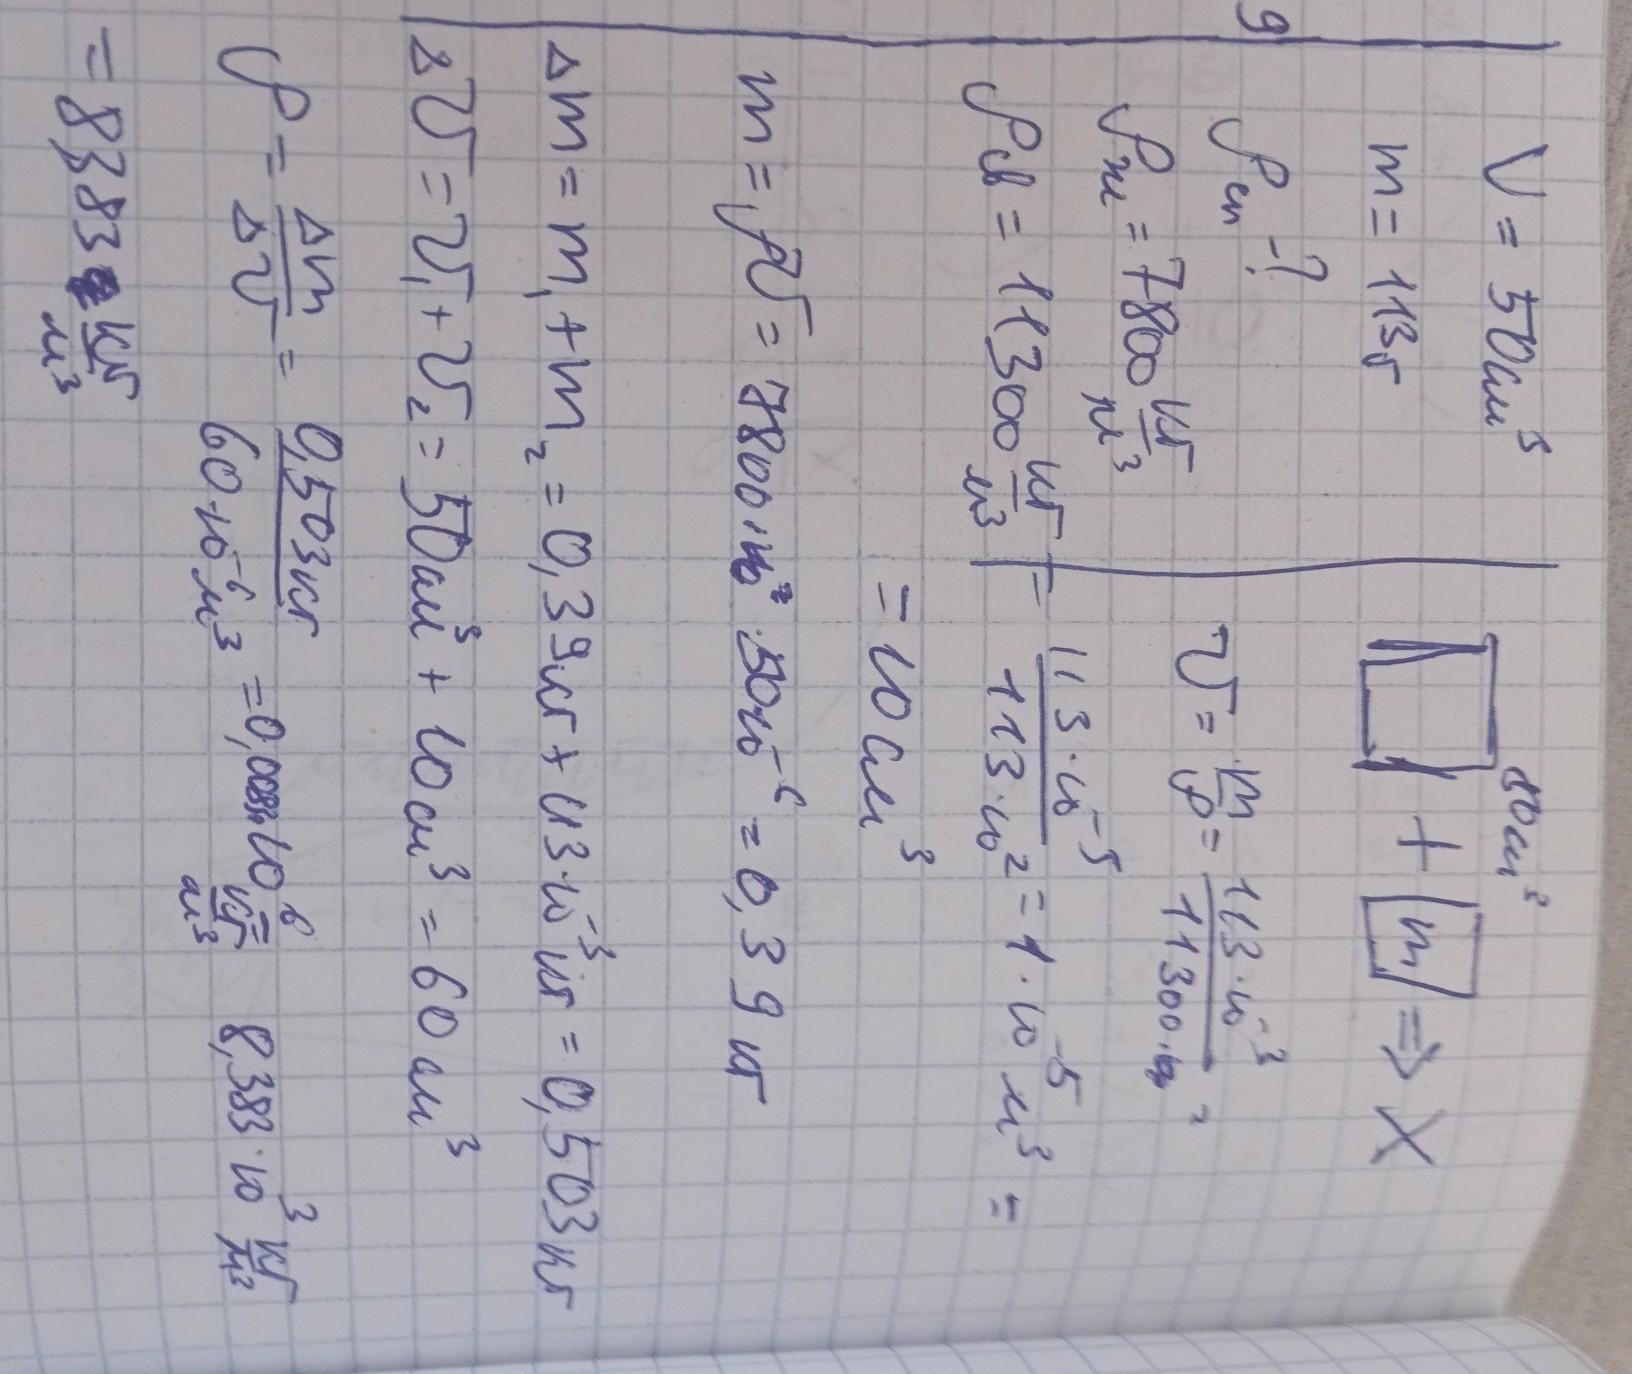 9
V = 50см³
m = 113г
ρсп - ?
ρж = 7800 кг/м³
ρсв = 11300 кг/м³
50см³
+ m₁ ⇒ X
V = m/ρ = 113·10⁻³/11300 =
= 113·10⁻⁵/113·10² = 1·10⁻⁵ м³ =
= 10см³
m = ρV = 7800 · 50·10⁻⁶ = 0,39 кг
Δm = m₁ + m₂ = 0,39кг + 113·10⁻³ кг = 0,503кг
ΔV = V₁ + V₂ = 50см³ + 10см³ = 60см³
ρ = Δm/ΔV = 0,503кг/60·10⁻⁶м³ = 8,383·10³ кг/м³
= 8383 кг/м³